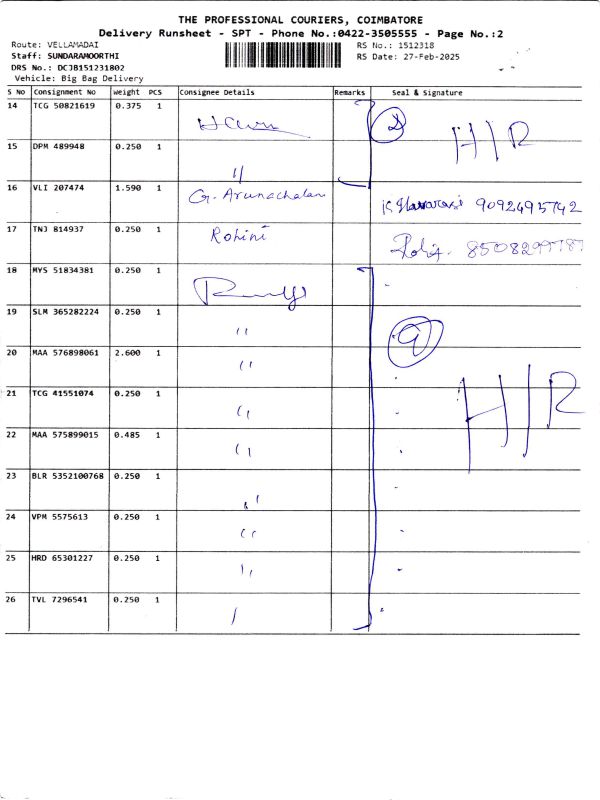 THE PROFESSIONAL COURIERS, COIMBATORE
Delivery Runsheet - SPT - Phone No.:0422-3505555 - Page No.:2
Route: VELLAMADAI RS No.: 1512318
Staff: SUNDARAMOORTHI RS Date: 27-Feb-2025
DRS No.: DCJB151231802
Vehicle: Big Bag Delivery
S No Consignment No Weight PCS Consignee Details Remarks Seal & Signature
14 TCG 50821619 0.375 1 H/R
15 DPM 489948 0.250 1 "
16 VLI 207474 1.590 1 G. Arunachalam 9092495742
17 TNJ 814937 0.250 1 Rohini
18 MYS 51834381 0.250 1
19 SLM 365282224 0.250 1 "
20 MAA 576898061 2.600 1 " 9
21 TCG 41551074 0.250 1 " H/R
22 MAA 575899015 0.485 1 "
23 BLR 5352100768 0.250 1 "
24 VPM 5575613 0.250 1 "
25 HRD 65301227 0.250 1 "
26 TVL 7296541 0.250 1